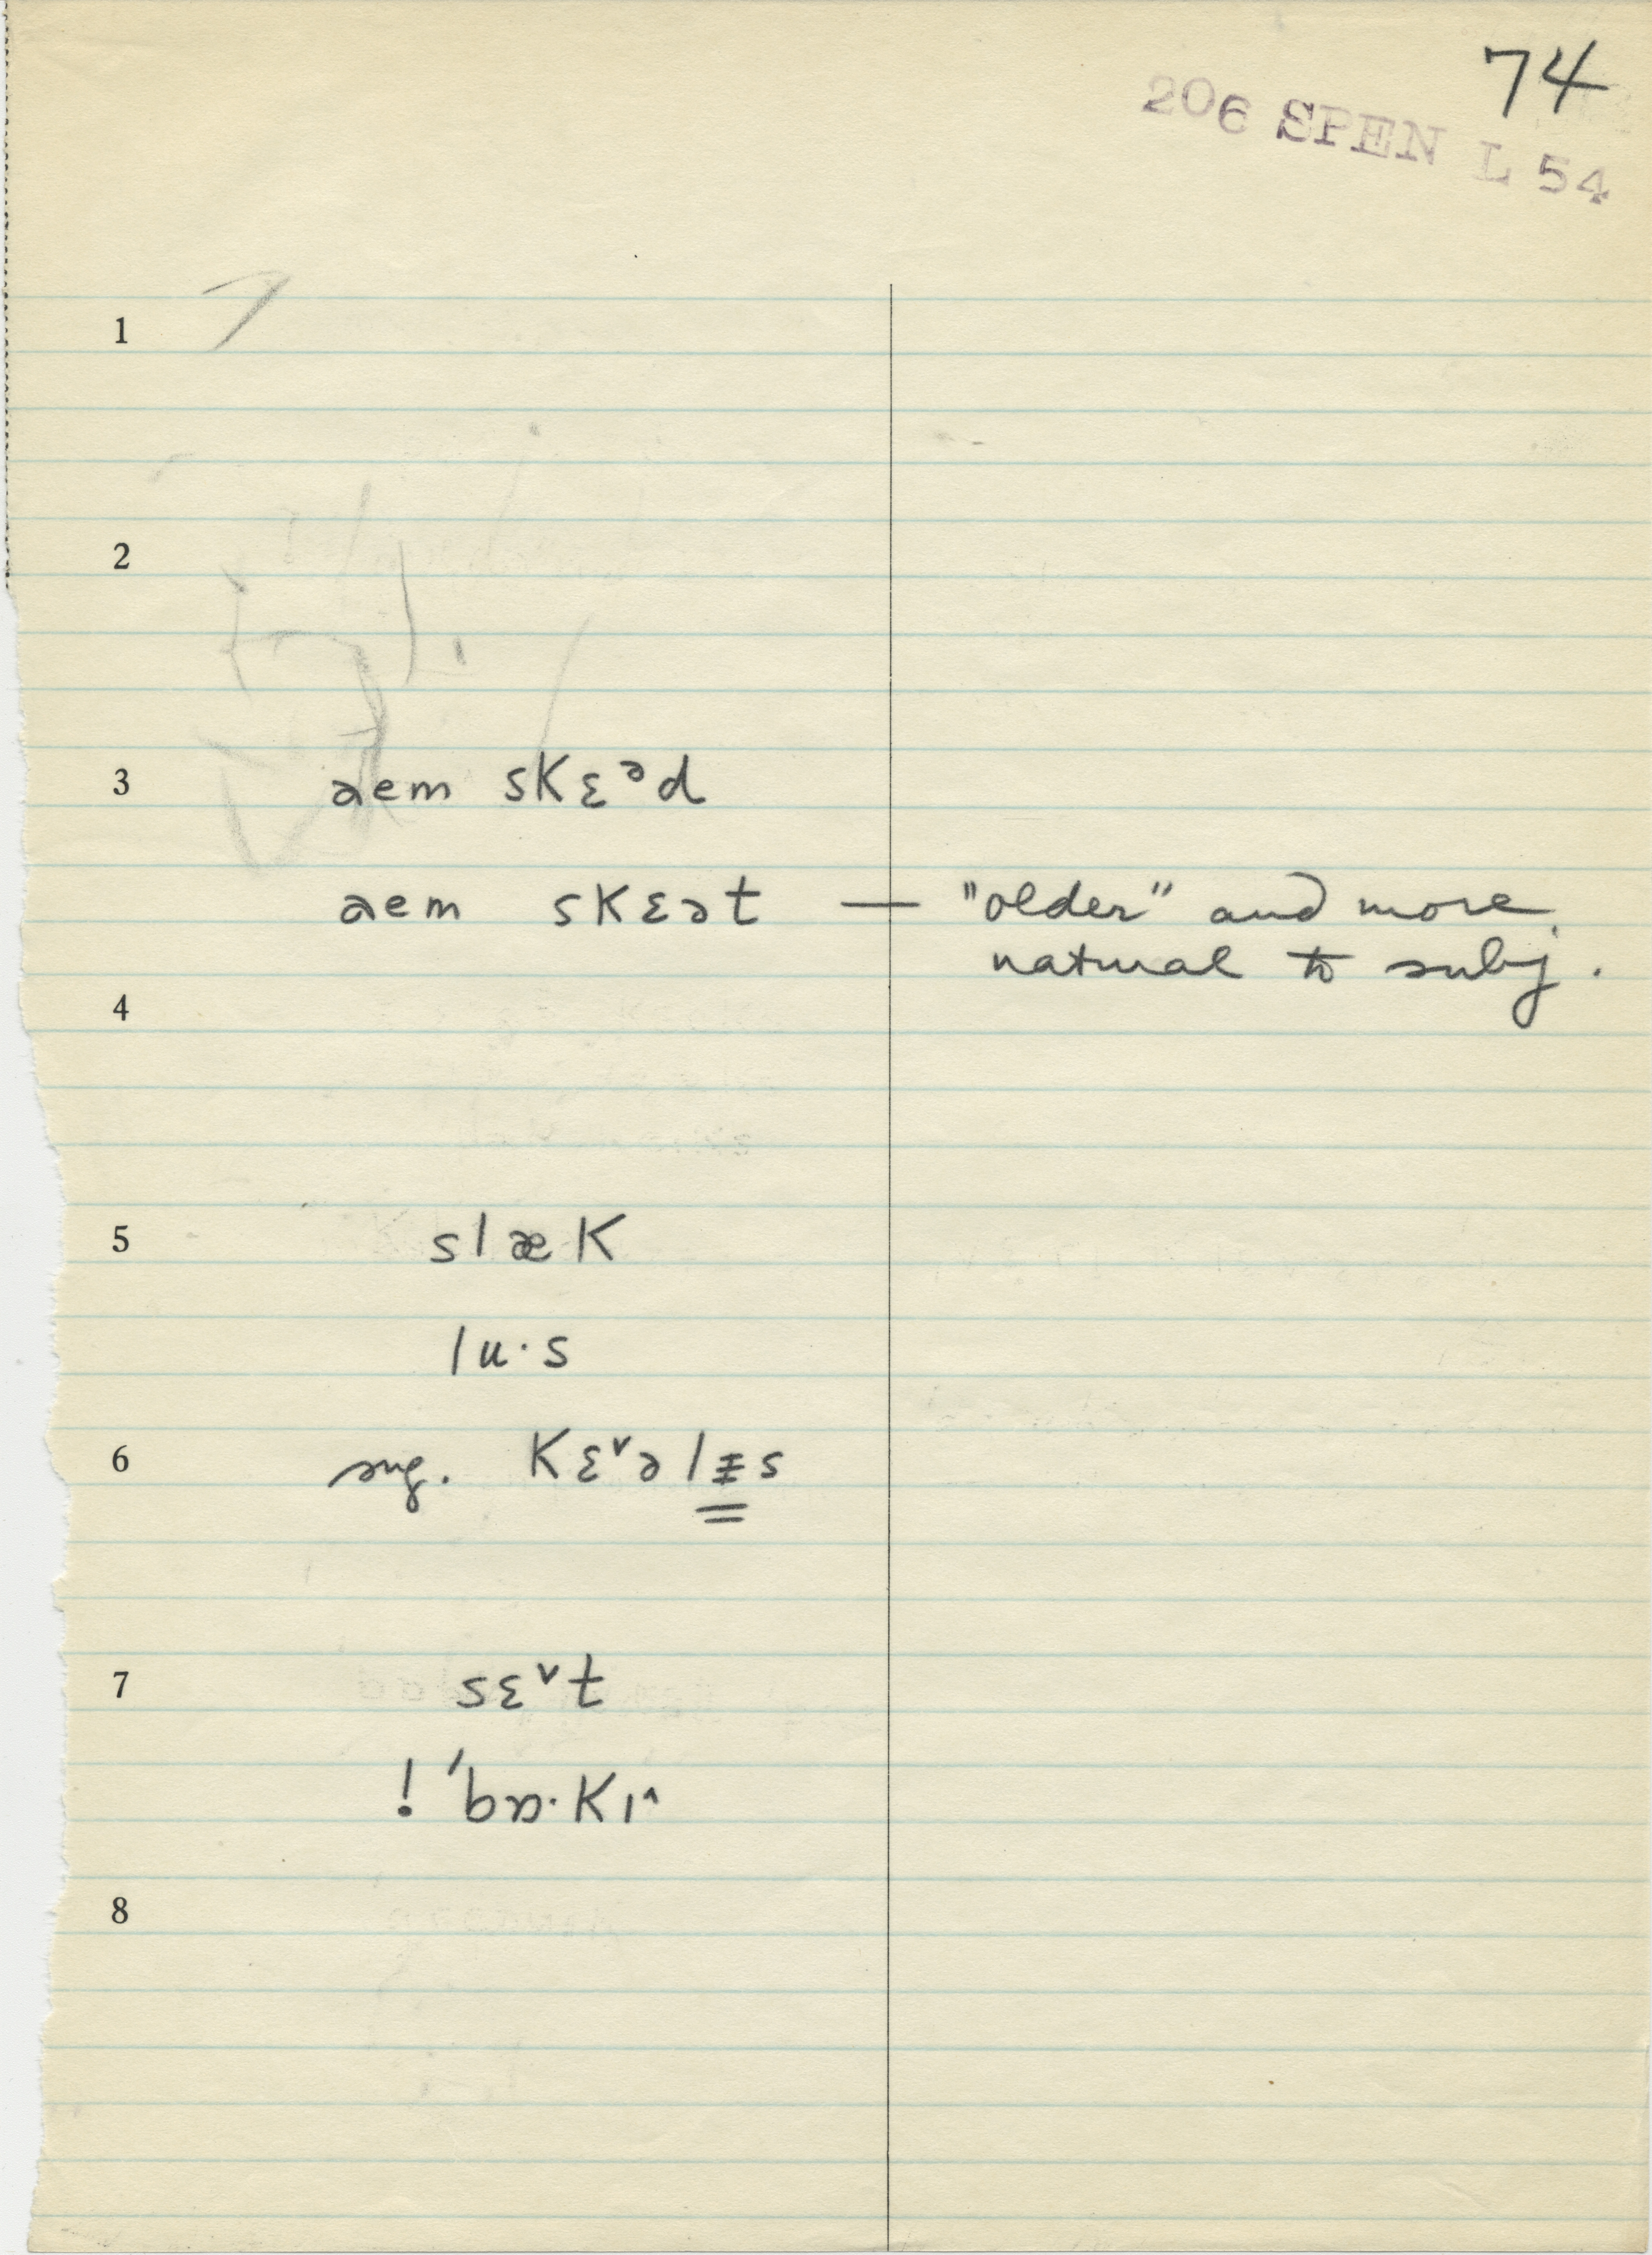 74
206 SPEN L 54
1
2
3 aem sKɛᵊd
aem sKɛət — "older" and more
natural to subj.
4
5 slæK
lu·s
6 sug. Kɛᵛəlɪ̵s
7 sɛᵛt
! 'bɒ·Kɪ^
8